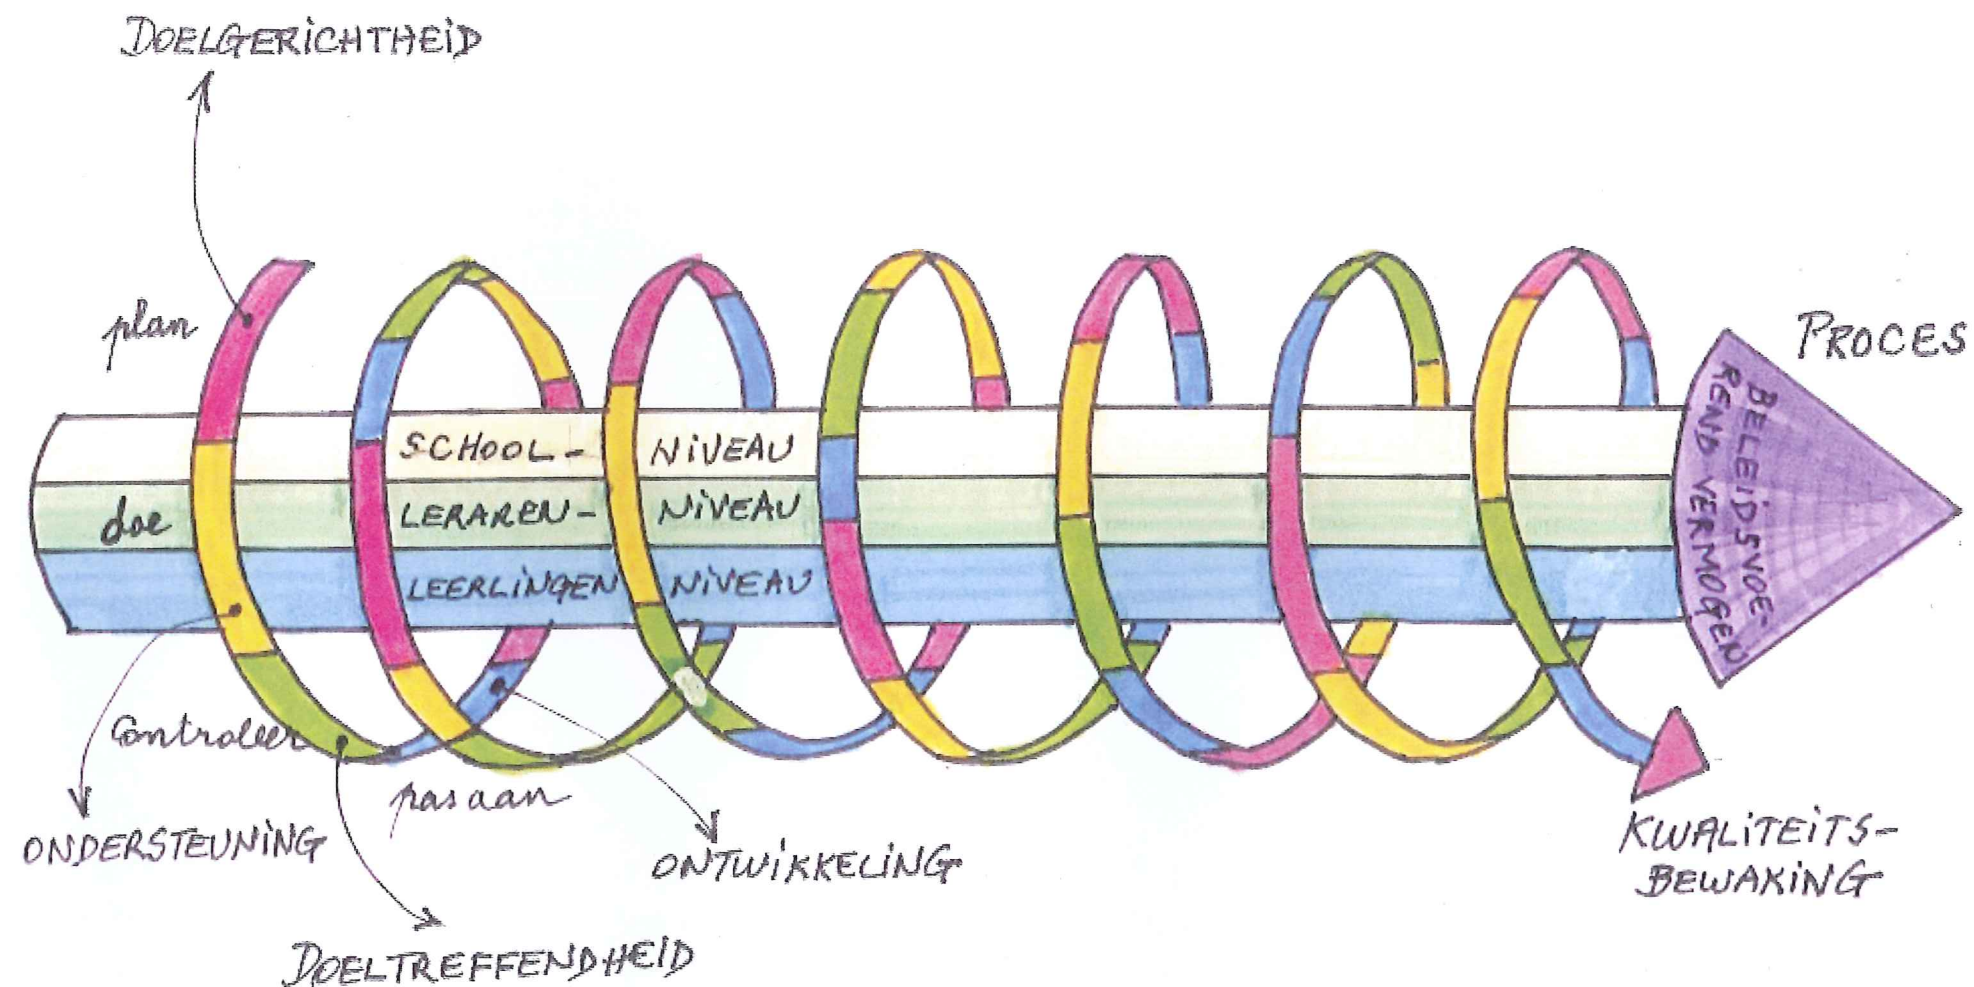 DOELGERICHTHEID
plan
PROCES
SCHOOL- NIVEAU
doe LERAREN- NIVEAU
LEERLINGEN NIVEAU
BELEIDSVOE-
REND VERMOGEN
Controleer
pas aan
ONDERSTEUNING
ONTWIKKELING
KWALITEITS-
BEWAKING
DOELTREFFENDHEID